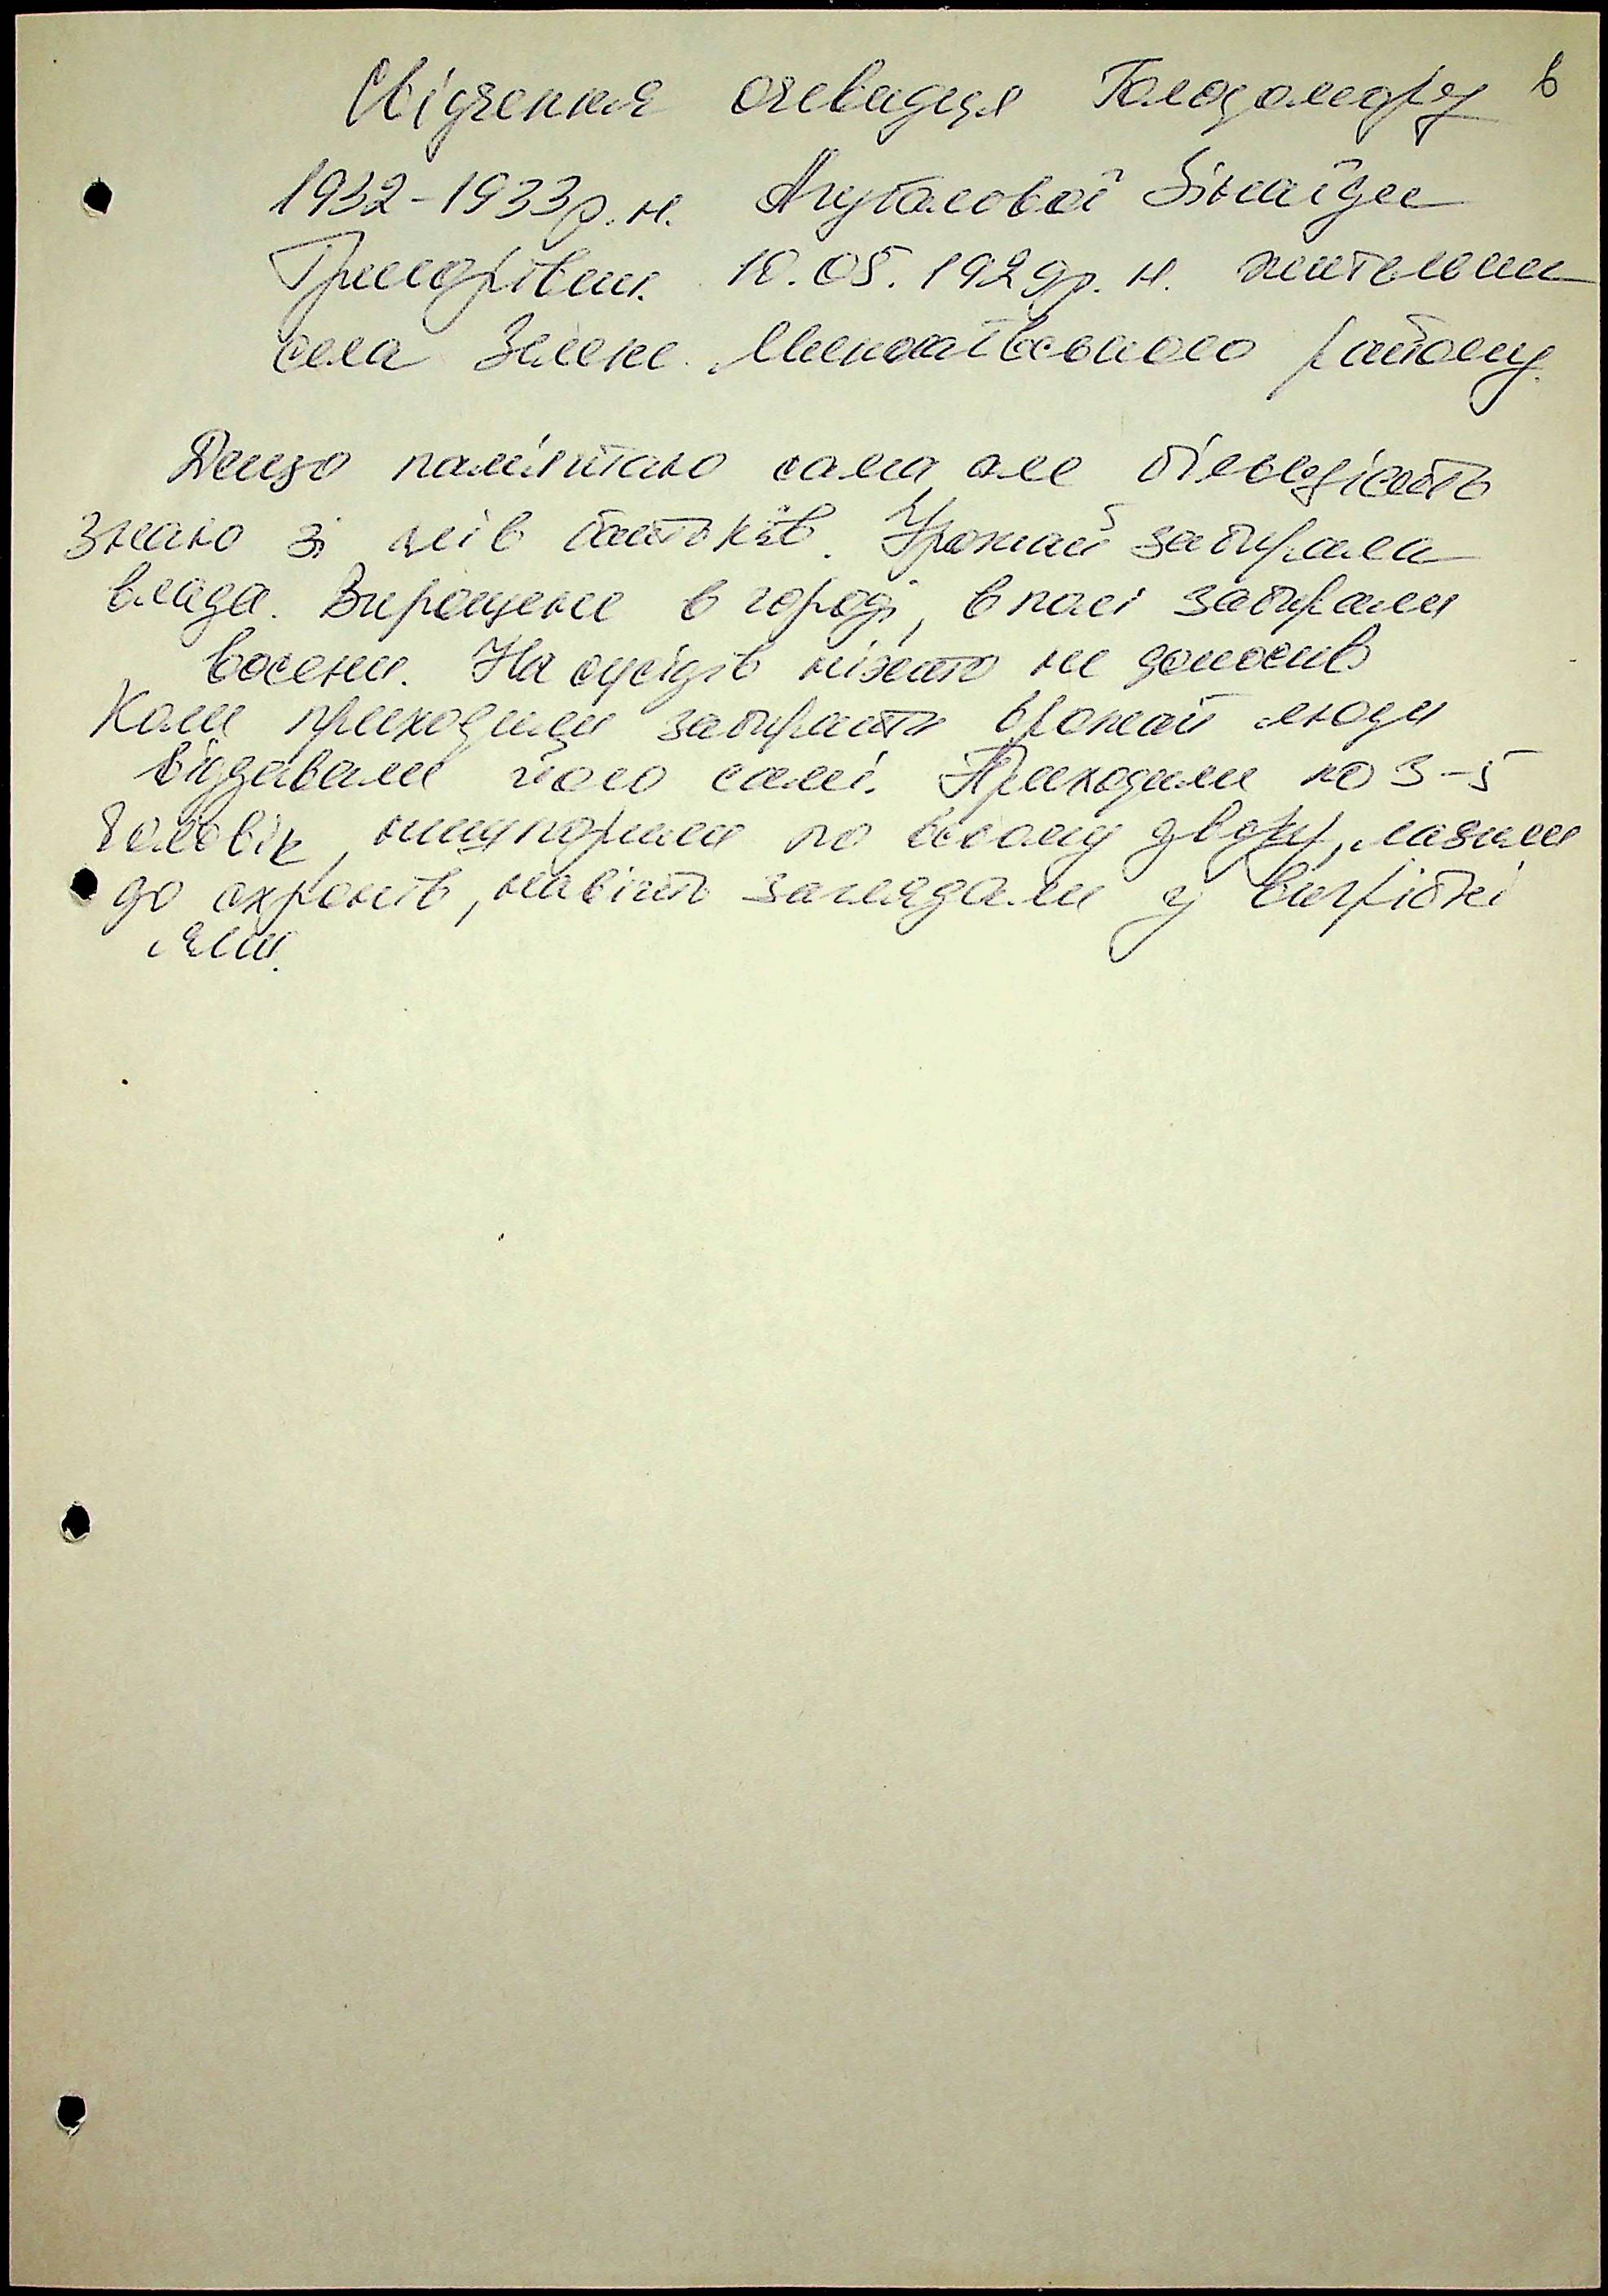 Свідчення очевидця Голодомору 6
1932-1933р.н. Агуталової Зінаїди
Григорівни. 10.05.1929р.н. жительки
села Зелене. району.
Дещо пам'ятаю сама, але більшість
знаю зі слів батьків. Урожай забирала
влада. Вирощене в городі, в полі забирали
восени. На сусідів ніхто не доносив
Коли приходили забирати врожай люди
віддавали його самі. Приходили по 3-5
чоловік, нишпорили по всьому двору, лазили
до скронь, навіть заглядали у вигрібні
ями.